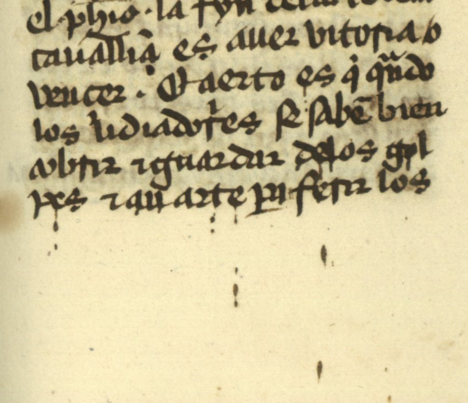 el phīo. la fyn
cauallīa es auer vitoria o
vencer. Çierto es q̄ qn̄do
los lidiadores se sabē bien
cobrir ⁊ guardar delos gol
pes ⁊ an arte pa ferir los